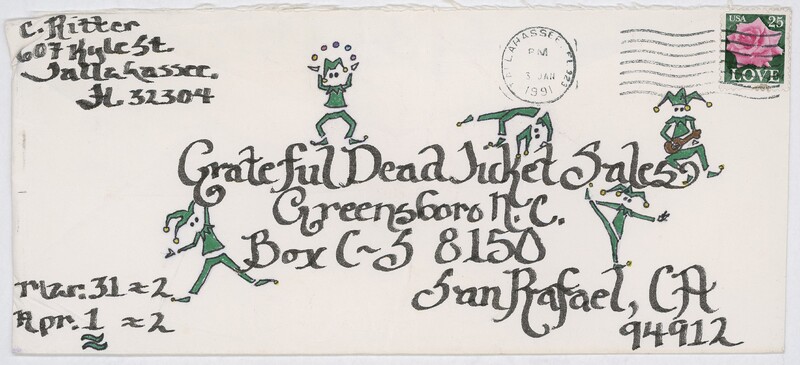 C. Ritter
607 Kyle St.
Tallahassee.
Fl 32304
TALLAHASSEE, FL 323
PM
3 JAN
1991
USA 25
LOVE
Grateful Dead Ticket Sales
Greensboro N.C.
Box C~S 8150
San Rafael, CA
94912
Mar. 31 ≈ 2
Apr. 1 ≈ 2